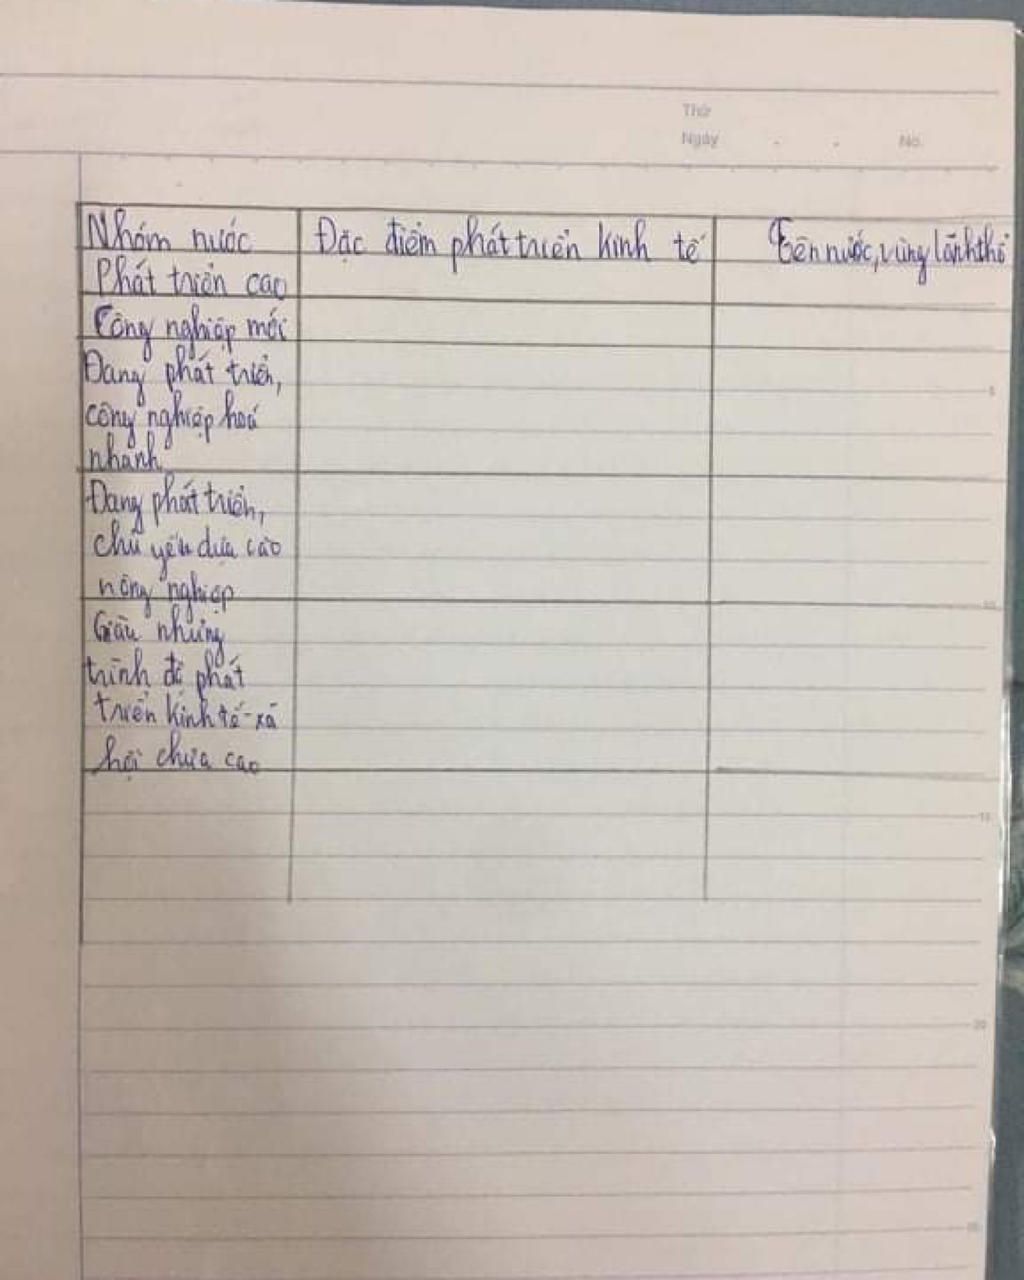 Thứ
Ngày . . No.
Nhóm nước Đặc điểm phát triển kinh tế Tên nước, vùng lãnh thổ
Phát triển cao
Công nghiệp mới
Đang phát triển,
công nghiệp hoá
nhanh
Đang phát triển,
chủ yếu dựa cào
nông nghiệp
Giàu nhưng
trình độ phát
triển kinh tế-xã
hội chưa cao
5
10
15
20
25